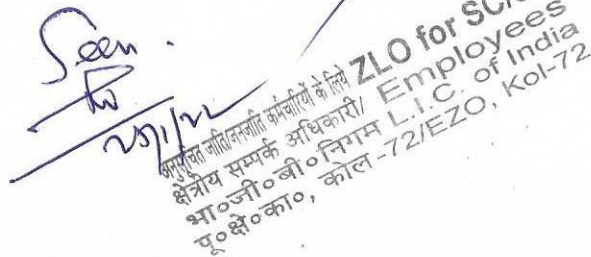 Seen.
अनुसूचित जाति/जनजाति कर्मचारियों के लिये ZLO for SC/
क्षेत्रीय सम्पर्क अधिकारी/ Employees
भा०जी०बी०निगम L.I.C. of India
पू०क्षे०का०, कोल-72/EZO, Kol-72